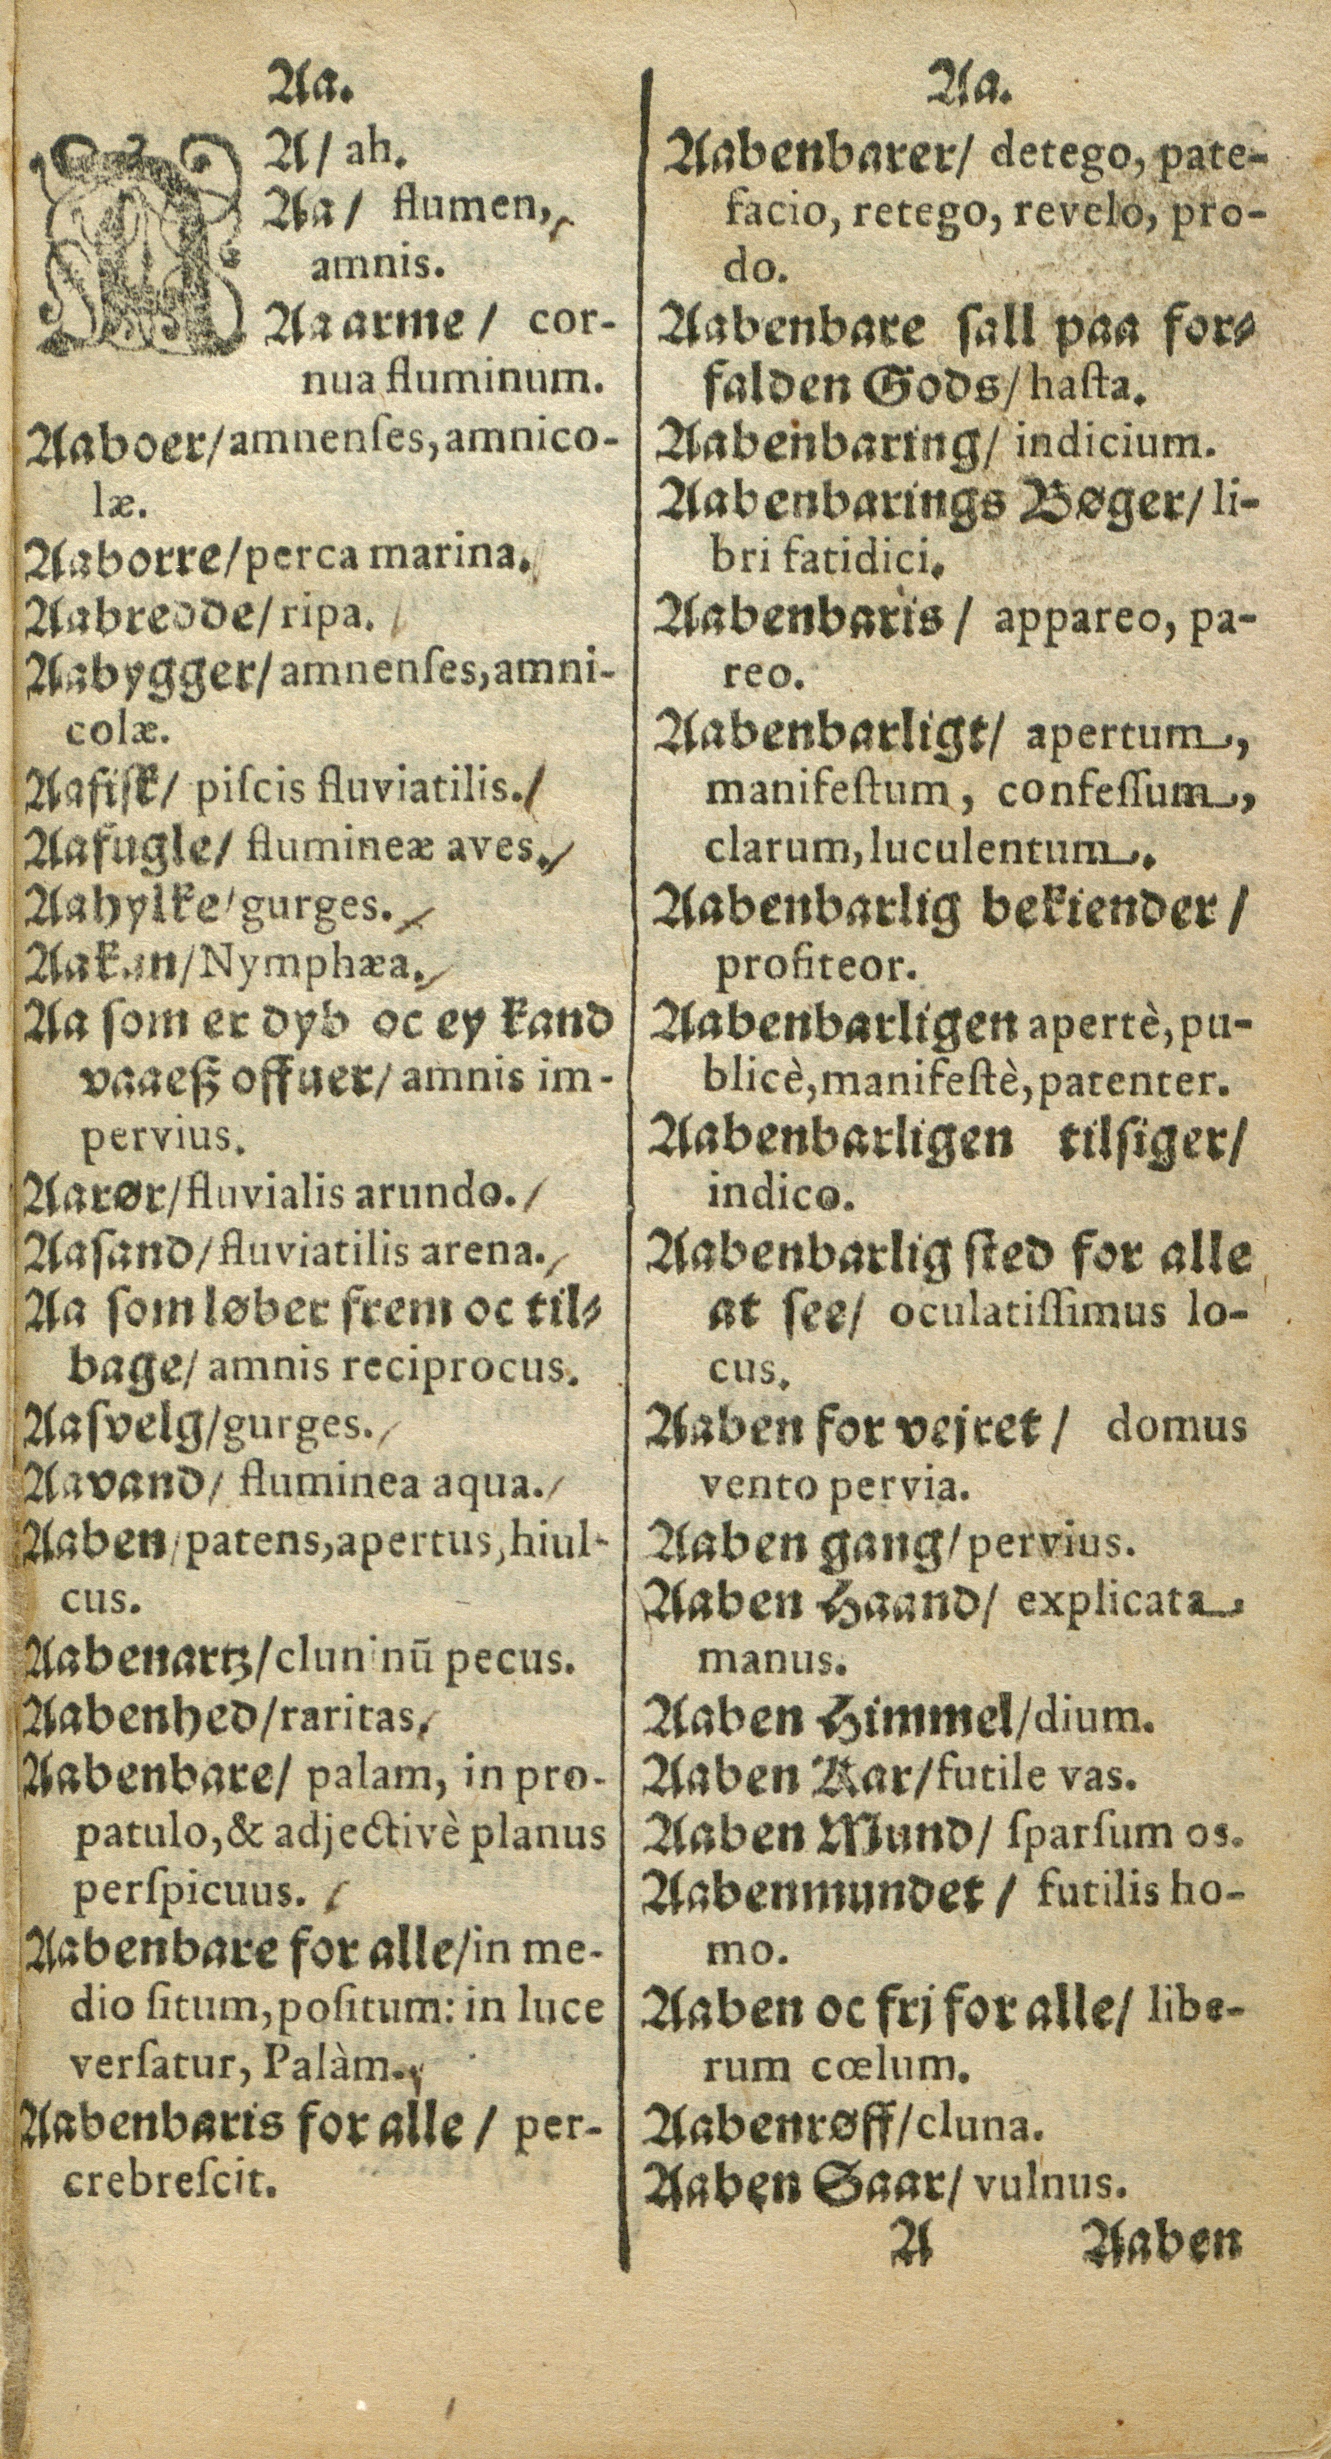 Aa.
A/ ah.
Aa/ flumen,
amnis.
Aa arme/ cor-
nua fluminum.
Aaboer/amnenſes,amnico-
læ.
Aaborre/perca marina.
Aabredde/ripa.
Aabygger/amnenſes,amni-
colæ.
Aafiſk/ piſcis fluviatilis.
Aafugle/ flumineæ aves.
Aahylke/gurges.
Aakan/Nymphæa.
Aa ſom er dyb oc ey kand
vaaeß offuer/amnis im-
pervius.
Aarør/fluvialis arundo.
Aaſand/fluviatilis arena.
Aa ſom løber frem oc til-
bage/amnis reciprocus.
Aaſvelg/gurges.
Aavand/ fluminea aqua.
Aaben/patens,apertus,hiul-
cus.
Aabenartz/cluninū pecus.
Aabenhed/raritas.
Aabenbare/ palam, in pro-
patulo,& adjectivè planus
perſpicuus.
Aabenbare for alle/in me-
dio ſitum,poſitum: in luce
verſatur, Palàm.
Aabenbaris for alle/ per-
crebreſcit.
Aa.
Aabenbarer/ detego, pate-
facio, retego, revelo, pro-
do.
Aabenbare ſall paa for-
falden Gods/haſta.
Aabenbaring/ indicium.
Aabenbarings Bøger/li-
bri fatidici.
Aabenbaris/ appareo, pa-
reo.
Aabenbarligt/ apertum,
manifeſtum, confeſſum,
clarum,luculentum.
Aabenbarlig bekiender/
profiteor.
Aabenbarligen apertè,pu-
blicè,manifeſtè,patenter.
Aabenbarligen tilſiger/
indico.
Aabenbarlig ſted for alle
at ſee/ oculatiſſimus lo-
cus.
Aaben for vejret/ domus
vento pervia.
Aaben gang/pervius.
Aaben Haand/ explicata
manus.
Aaben Himmel/dium.
Aaben Kar/futile vas.
Aaben Mund/ ſparſum os.
Aabenmundet/ futilis ho-
mo.
Aaben oc frj for alle/ libe-
rum cœlum.
Aabenrøff/cluna.
Aaben Saar/ vulnus.
A Aaben